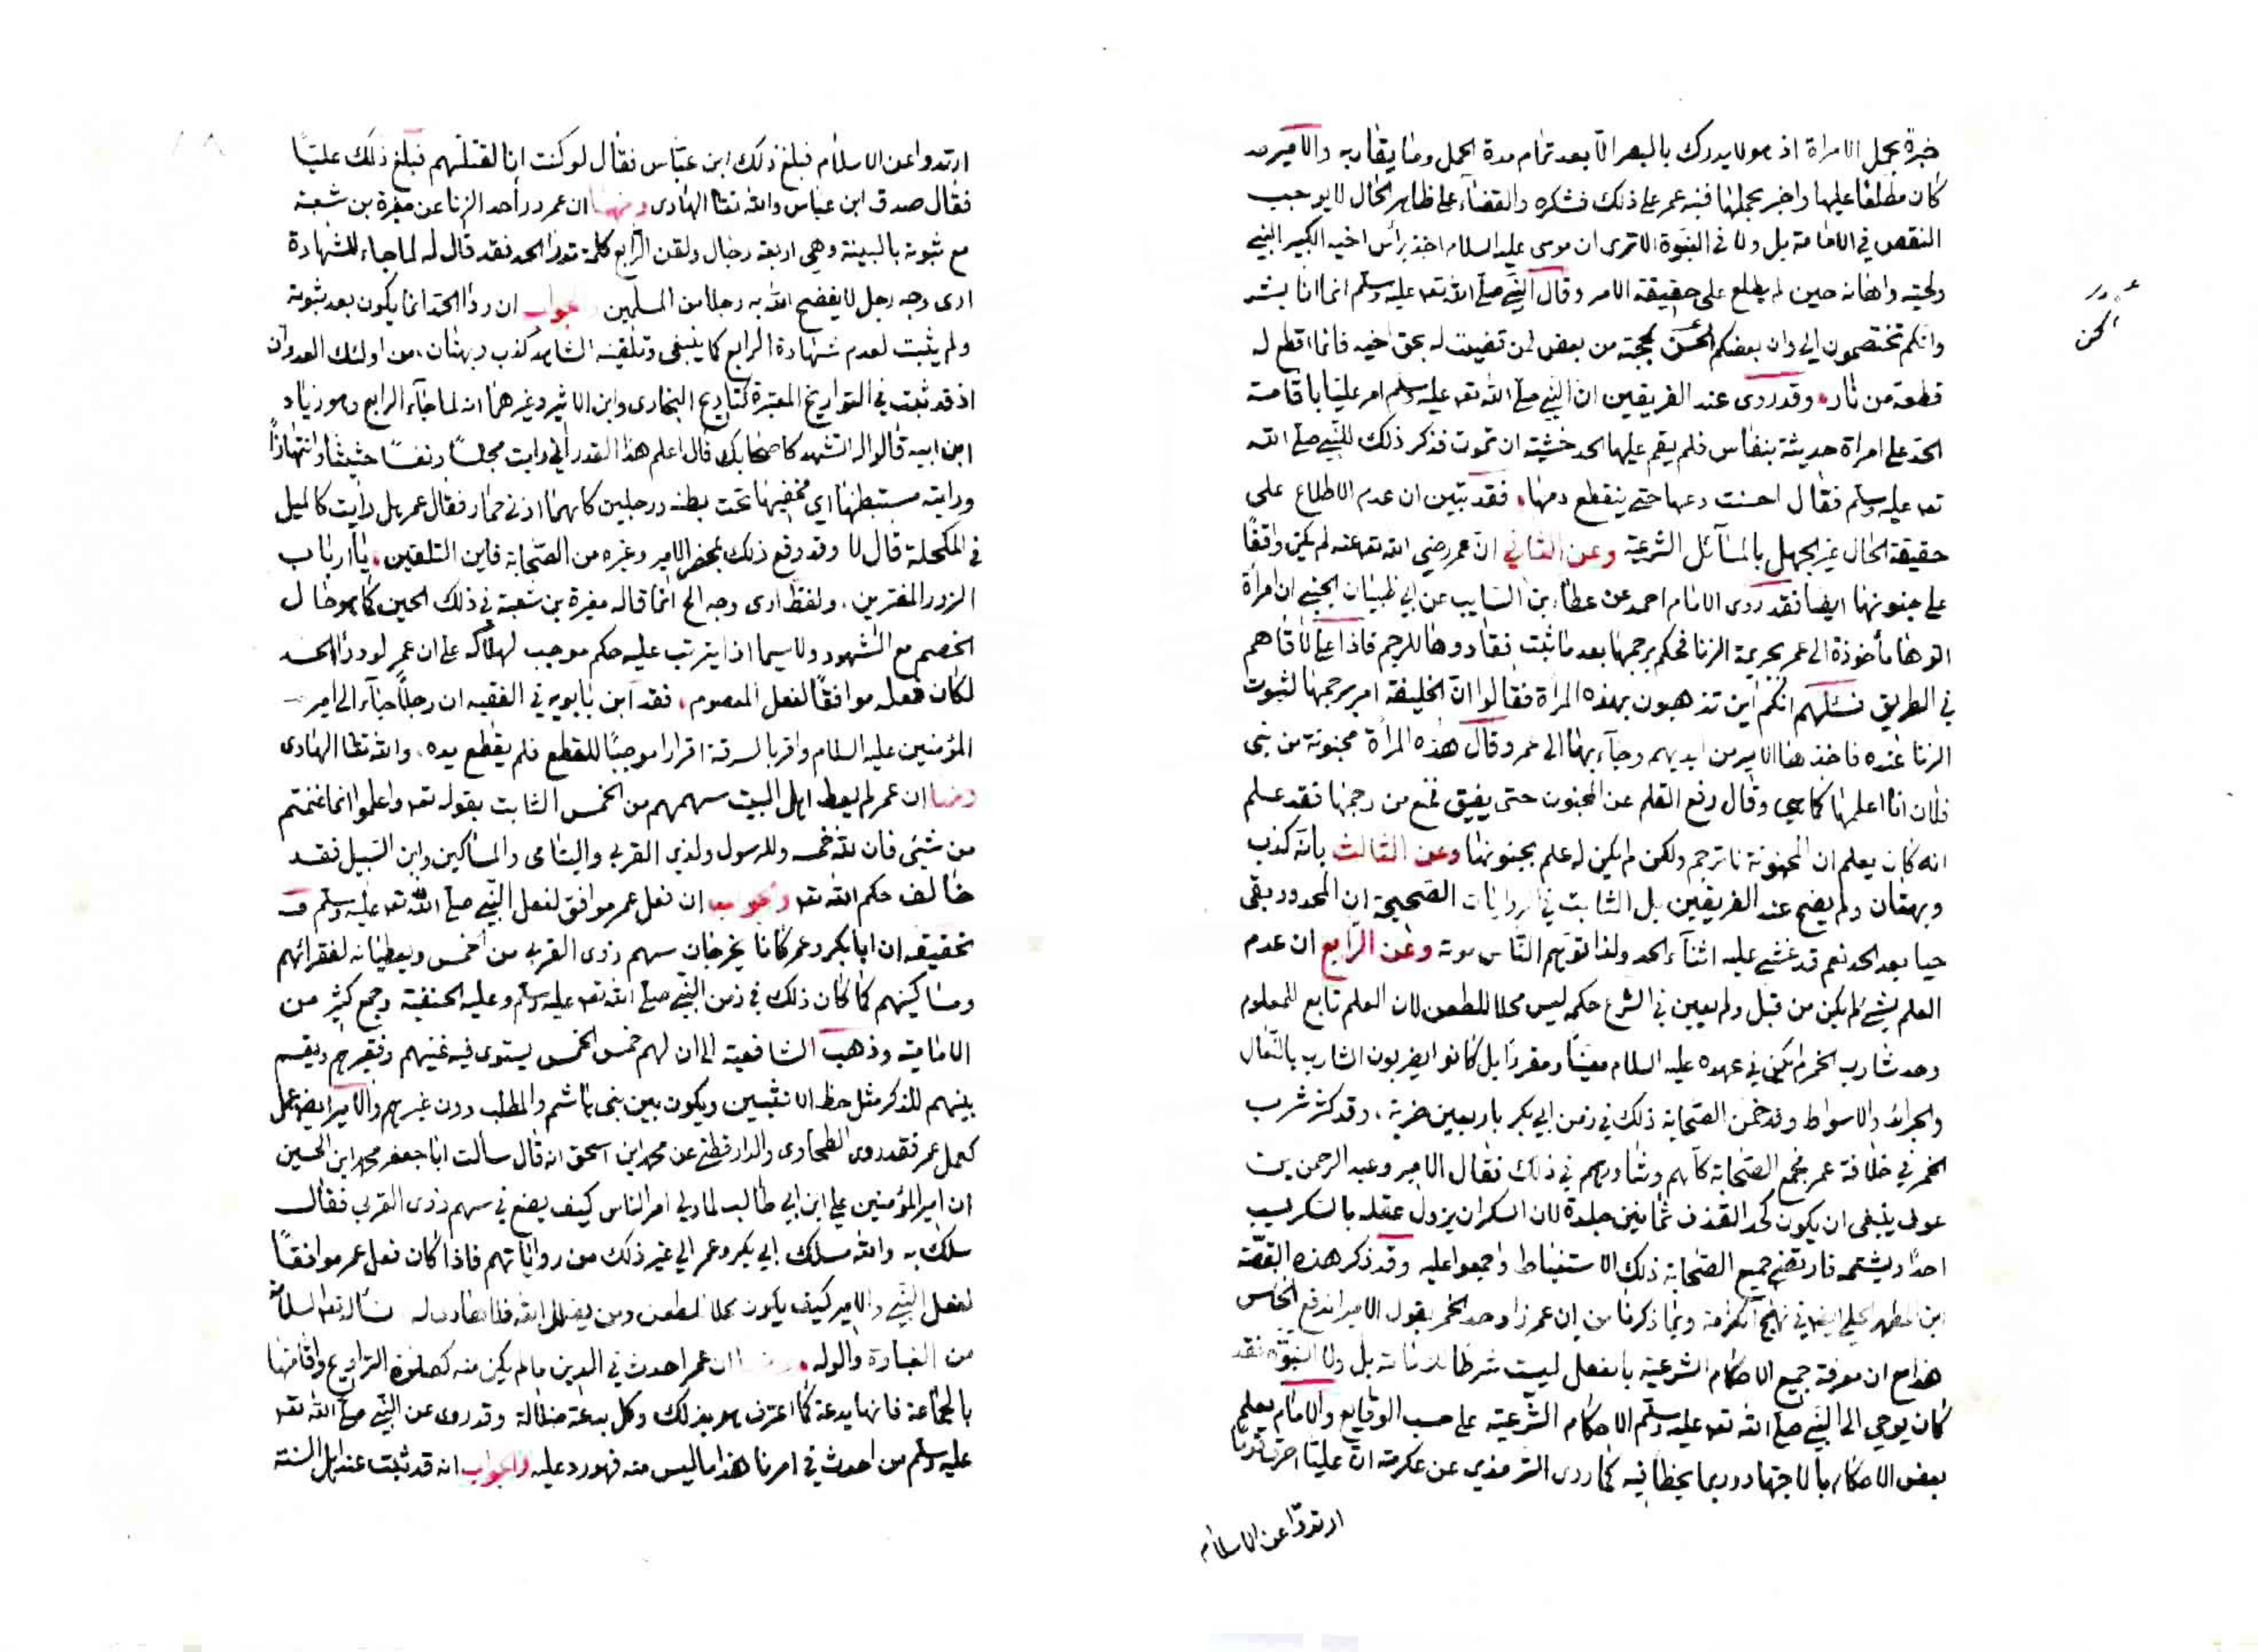 خبرة بحمل الامراة اذ هو لا يدرك بالبصر الا بعد تمام مدة الحمل وما يقاربه والامير قد
كان مطلعا عليها واخبر بحملها فنبه عمر على ذلك فشكره والقضاء على ظاهر الحال لا يوجب
النقص في الامامة بل ولا في النبوة الا ترى ان موسى عليه السلام اخذ برأس اخيه الكبير النبي
ولحيته واهانه حين لم يطلع على حقيقة الامر وقال النبي صلى الله تعـ عليه وسلم انما انا بشر
وانكم تختصمون الي وان بعضكم الحن بحجته من بعض فمن قضيت له بحق اخيه فانما اقطع له
قطعة من نار، وقد روى عند الفريقين ان النبي صلى الله تعـ عليه وسلم امر عليا باقامة
الحد على امراة حديثة بنفاس فلم يقم عليها الحد خشية ان تموت فذكر ذلك للنبي صلى الله
تعـ عليه وسلم فقال احسنت دعها حتى ينقطع دمها، فقد تبين ان عدم الاطلاع على
حقيقة الحال غير الجهل بالمسائل الشرعية وعن الثاني ان عمر رضي الله تعـ عنه لم يكن واقفا
على جنونها ايضا فقد روى الامام احمد عن عطاء بن السايب عن ابي ظبيان الجنبي ان امرأة
اتوا بها مأخوذة الى عمر بجريمة الزنا فحكم برجمها بعد ما ثبت فقادوها للرجم فاذا علي لاقاهم
في الطريق فسئلهم انكم اين تذهبون بهذه المرأة فقالوا ان الخليفة امر برجمها لثبوت
الزنا عنده فاخذها الامير من ايديهم وجآء بها الى عمر وقال هذه المرأة مجنونة من بني
فلان انا اعلمها كما هي وقال رفع القلم عن المجنون حتى يفيق فمنع من رجمها فقد علم
انه كان يعلم ان المجنونة لا ترجم ولكن لم يكن له علم بجنونها وعن الثالث بانه كذب
وبهتان ولم يصح عند الفريقين بل الثابت في الروايات الصحيحة ان المحدود بقى
حيا بعد الحد نعم قد غشي عليه اثناء الحد ولذا توهم الناس موته وعن الرابع ان عدم
العلم بشئ لم يكن من قبل ولم يعين في الشرع حكمه ليس محلا للطعن لان العلم تابع للمعلوم
وحد شارب الخمر لم يكن في عهده عليه السلام معينا ومقررا بل كانوا يضربون الشارب بالنعال
والجرائد والاسواط وقد خمن الصحابة ذلك في زمن ابي بكر باربعين ضربة، وقد كثر شرب
الخمر في خلافة عمر فجمع الصحابة كلهم وشاورهم في ذلك فقال الامير وعبد الرحمن بن
عوف ينبغي ان يكون كحد القذف ثمانين جلدة لان السكران يزول عقله بالسكر فيسب
احدا ويشتمه فارتضى جميع الصحابة ذلك الاستنباط واجمعوا عليه وقد ذكر هذه القصة
ابن المطهر الحلي ايضا في نهج الكرامة وبما ذكرنا من ان عمر زاد حد الخمر بقول الامير اندفع الخامس
هذا مع ان معرفة جميع الاحكام الشرعية بالفعل ليست شرطا للامامة بل ولا النبوة فقد
كان يوحي الى النبي صلى الله تعـ عليه وسلم الاحكام الشرعية على حسب الوقايع والامام يعلم
بعض الاحكام بالاجتهاد وربما يخطا فيه كما روى الترمذي عن عكرمة ان عليا احرق قوما
ارتدوا عن الاسلام
الحن
ارتدوا عن الاسلام فبلغ ذلك ابن عباس فقال لو كنت انا لقتلتهم فبلغ ذلك عليا
فقال صدق ابن عباس والله تعا الهادى ومنها ان عمر درأ حد الزنا عن مغيرة بن شعبة
مع ثبوته بالبينة وهي اربعة رجال ولقن الرابع كلمة تدرأ الحد فقد قال له لما جاء للشهادة
ارى وجه رجل لا يفضح الله به رجلا من المسلمين والجواب ان درأ الحد انما يكون بعد ثبوته
ولم يثبت لعدم شهادة الرابع كما ينبغي وتلقينه الشاهد كذب وبهتان من اولئك العدوان
اذ قد ثبت في التواريخ المعتبرة كتاريخ البخارى وابن الاثير وغيرهما انه لما جاء الرابع وهو زياد
ابن ابيه قالوا له اتشهد كاصحابك قال اعلم هذا القدر اني رايت مجلسا ونفسا حثيثا وانتهازا
ورايته مستبطنها اي مخفيها تحت بطنه ورجلين كانهما اذني حمار فقال عمر هل رايت كالميل
في المكحلة قال لا وقد وقع ذلك بمحضر الامير وغيره من الصحابة فاين التلقين، يا ارباب
الزور المفترين، ولفظ ارى وجه الخ انما قاله مغيرة بن شعبة في ذلك الحين كما هو حال
الخصم مع الشهود ولا سيما اذا يترتب عليه حكم موجب لهلاكه على ان عمر لو درأ الحد
لكان فعله موافقا لفعل المعصوم، فقد ابن بابويه في الفقيه ان رجلا جاء الى امير
المؤمنين عليه السلام واقر بالسرقة اقرارا موجبا للقطع فلم يقطع يده، والله تعا الهادى
ومنها ان عمر لم يعط اهل البيت سهمهم من الخمس الثابت بقوله تعـ واعلموا انما غنمتم
من شيئ فان لله خمسه وللرسول ولذي القربى واليتامى والمساكين وابن السبيل فقد
خالف حكم الله تعـ وجوابه ان فعل عمر موافق لفعل النبي صلى الله تعـ عليه وسلم و
تحقيقه ان ابا بكر وعمر كانا يخرجان سهم ذوى القربى من الخمس ويعطيانه لفقرائهم
ومساكينهم كما كان ذلك في زمن النبي صلى الله تعـ عليه وسلم وعليه الحنفية وجمع كثير من
الامامية وذهب الشافعية الى ان لهم خمس الخمس يستوى فيه غنيهم وفقيرهم ويقسم
بينهم للذكر مثل حظ الانثيين ويكون بين بني هاشم والمطلب دون غيرهم والامير ايضا عمل
كعمل عمر فقد روى الطحاوى والدارقطني عن محمد ابن اسحق انه قال سألت ابا جعفر محمد ابن الحسين
ان امير المؤمنين علي ابن ابي طالب لما ولي امر الناس كيف يصنع في سهم ذوى القربى فقال
سلك به والله مسلك ابي بكر وعمر الى غير ذلك من رواياتهم فاذا كان فعل عمر موافقا
لفعل النبي والامير كيف يكون محلا للطعن ومن يضلل الله فلا هادى له نسأله تعا السلامة
من الغباوة والوله، ومنها ان عمر احدث في الدين ما لم يكن منه كصلوة التراويح واقامتها
بالجماعة فانها بدعة كما اعترف هو بذلك وكل بدعة ضلالة وقد روى عن النبي صلى الله تعـ
عليه وسلم من احدث في امرنا هذا ما ليس منه فهو رد عليه والجواب انه قد ثبت عند اهل السنة